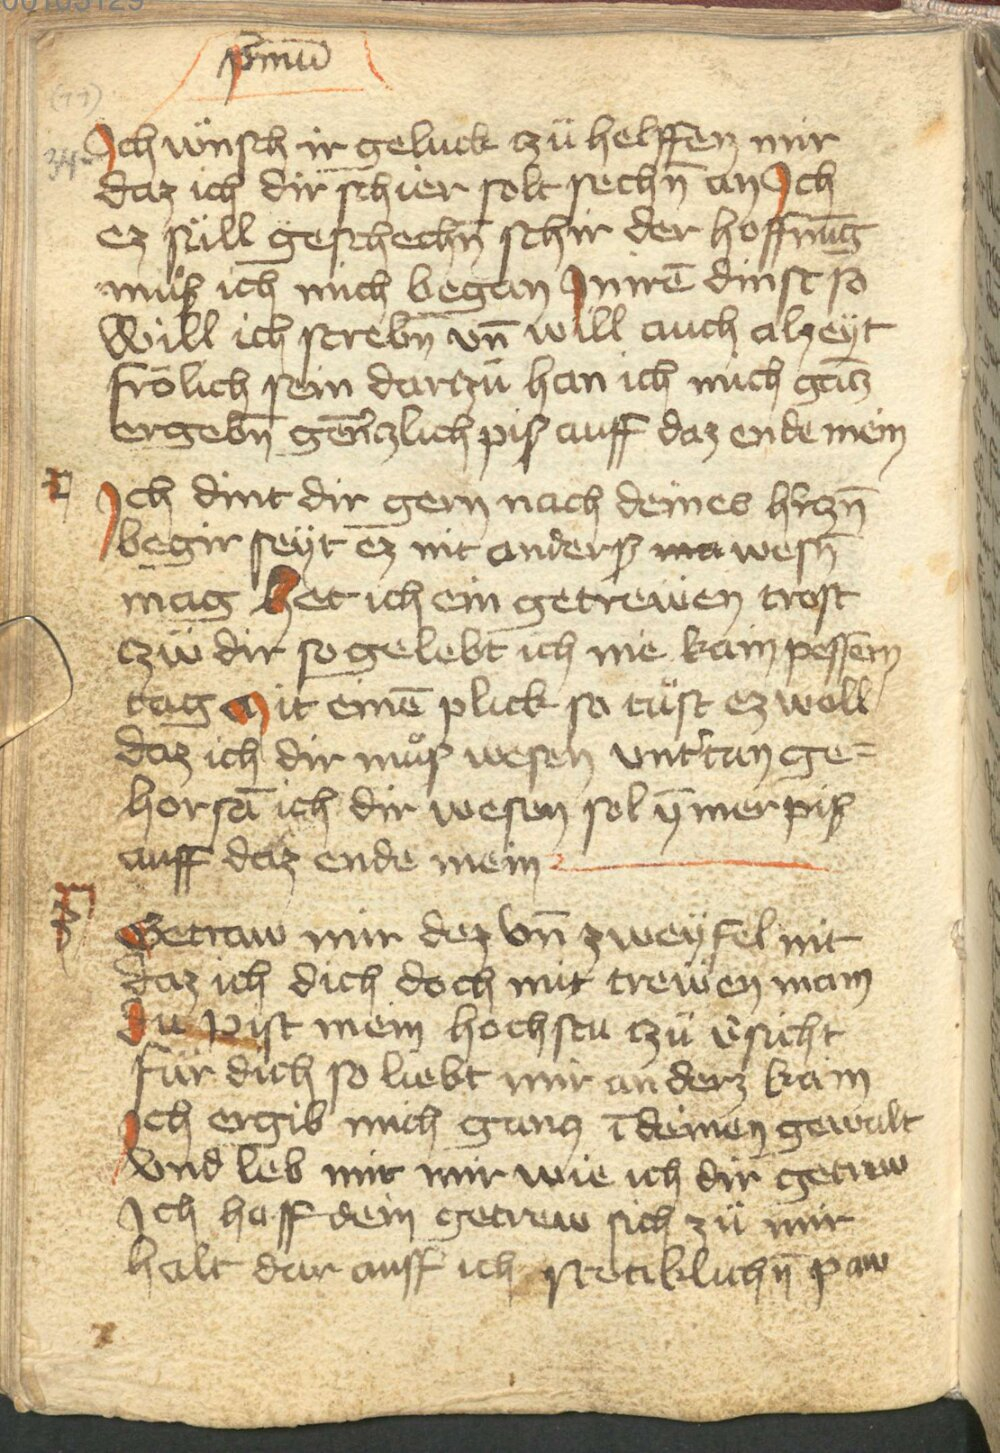 00105129
p̄mū
(77)
34
Ich wünsch ir geluck czü helffen mir
daz ich dir schier solt sechn̄ an Ich
ez süll geschechn̄ schir der hoffnūg
muͦß ich mich began In irē dinst so
Will ich strebn̄ vn̄ will auch alzeÿt
frölich sein darczü han ich mich gācz
ergebn̄ gen̄czlich piß auff daz ende mein
Ich dint dir gern nach deines hrczn̄
begir seÿt ez nit anderß ma wesn̄
mag Het ich ein getrewen trost
czw dir so gelebt ich nie kain pessern
tag Mit einē plick so tüst ez woll
daz ich dir muͦß wesen vnt'tan ge=
horsā ich dir wesen sol ÿmer piß
auff daz ende mein
Getraw mir dez vn̄ zweÿfel nit
daz ich dich doch mit trewen main
Du pist mein hochstu czü v̄sicht
für dich so liebt mir anderz kain
Ich ergib mich gancz ī deinen gewalt
vnd leb mit mir wie ich dir getraw
Ich hoff dein getrew sich zü mir
halt dar auff ich stetiklichn̄ paw